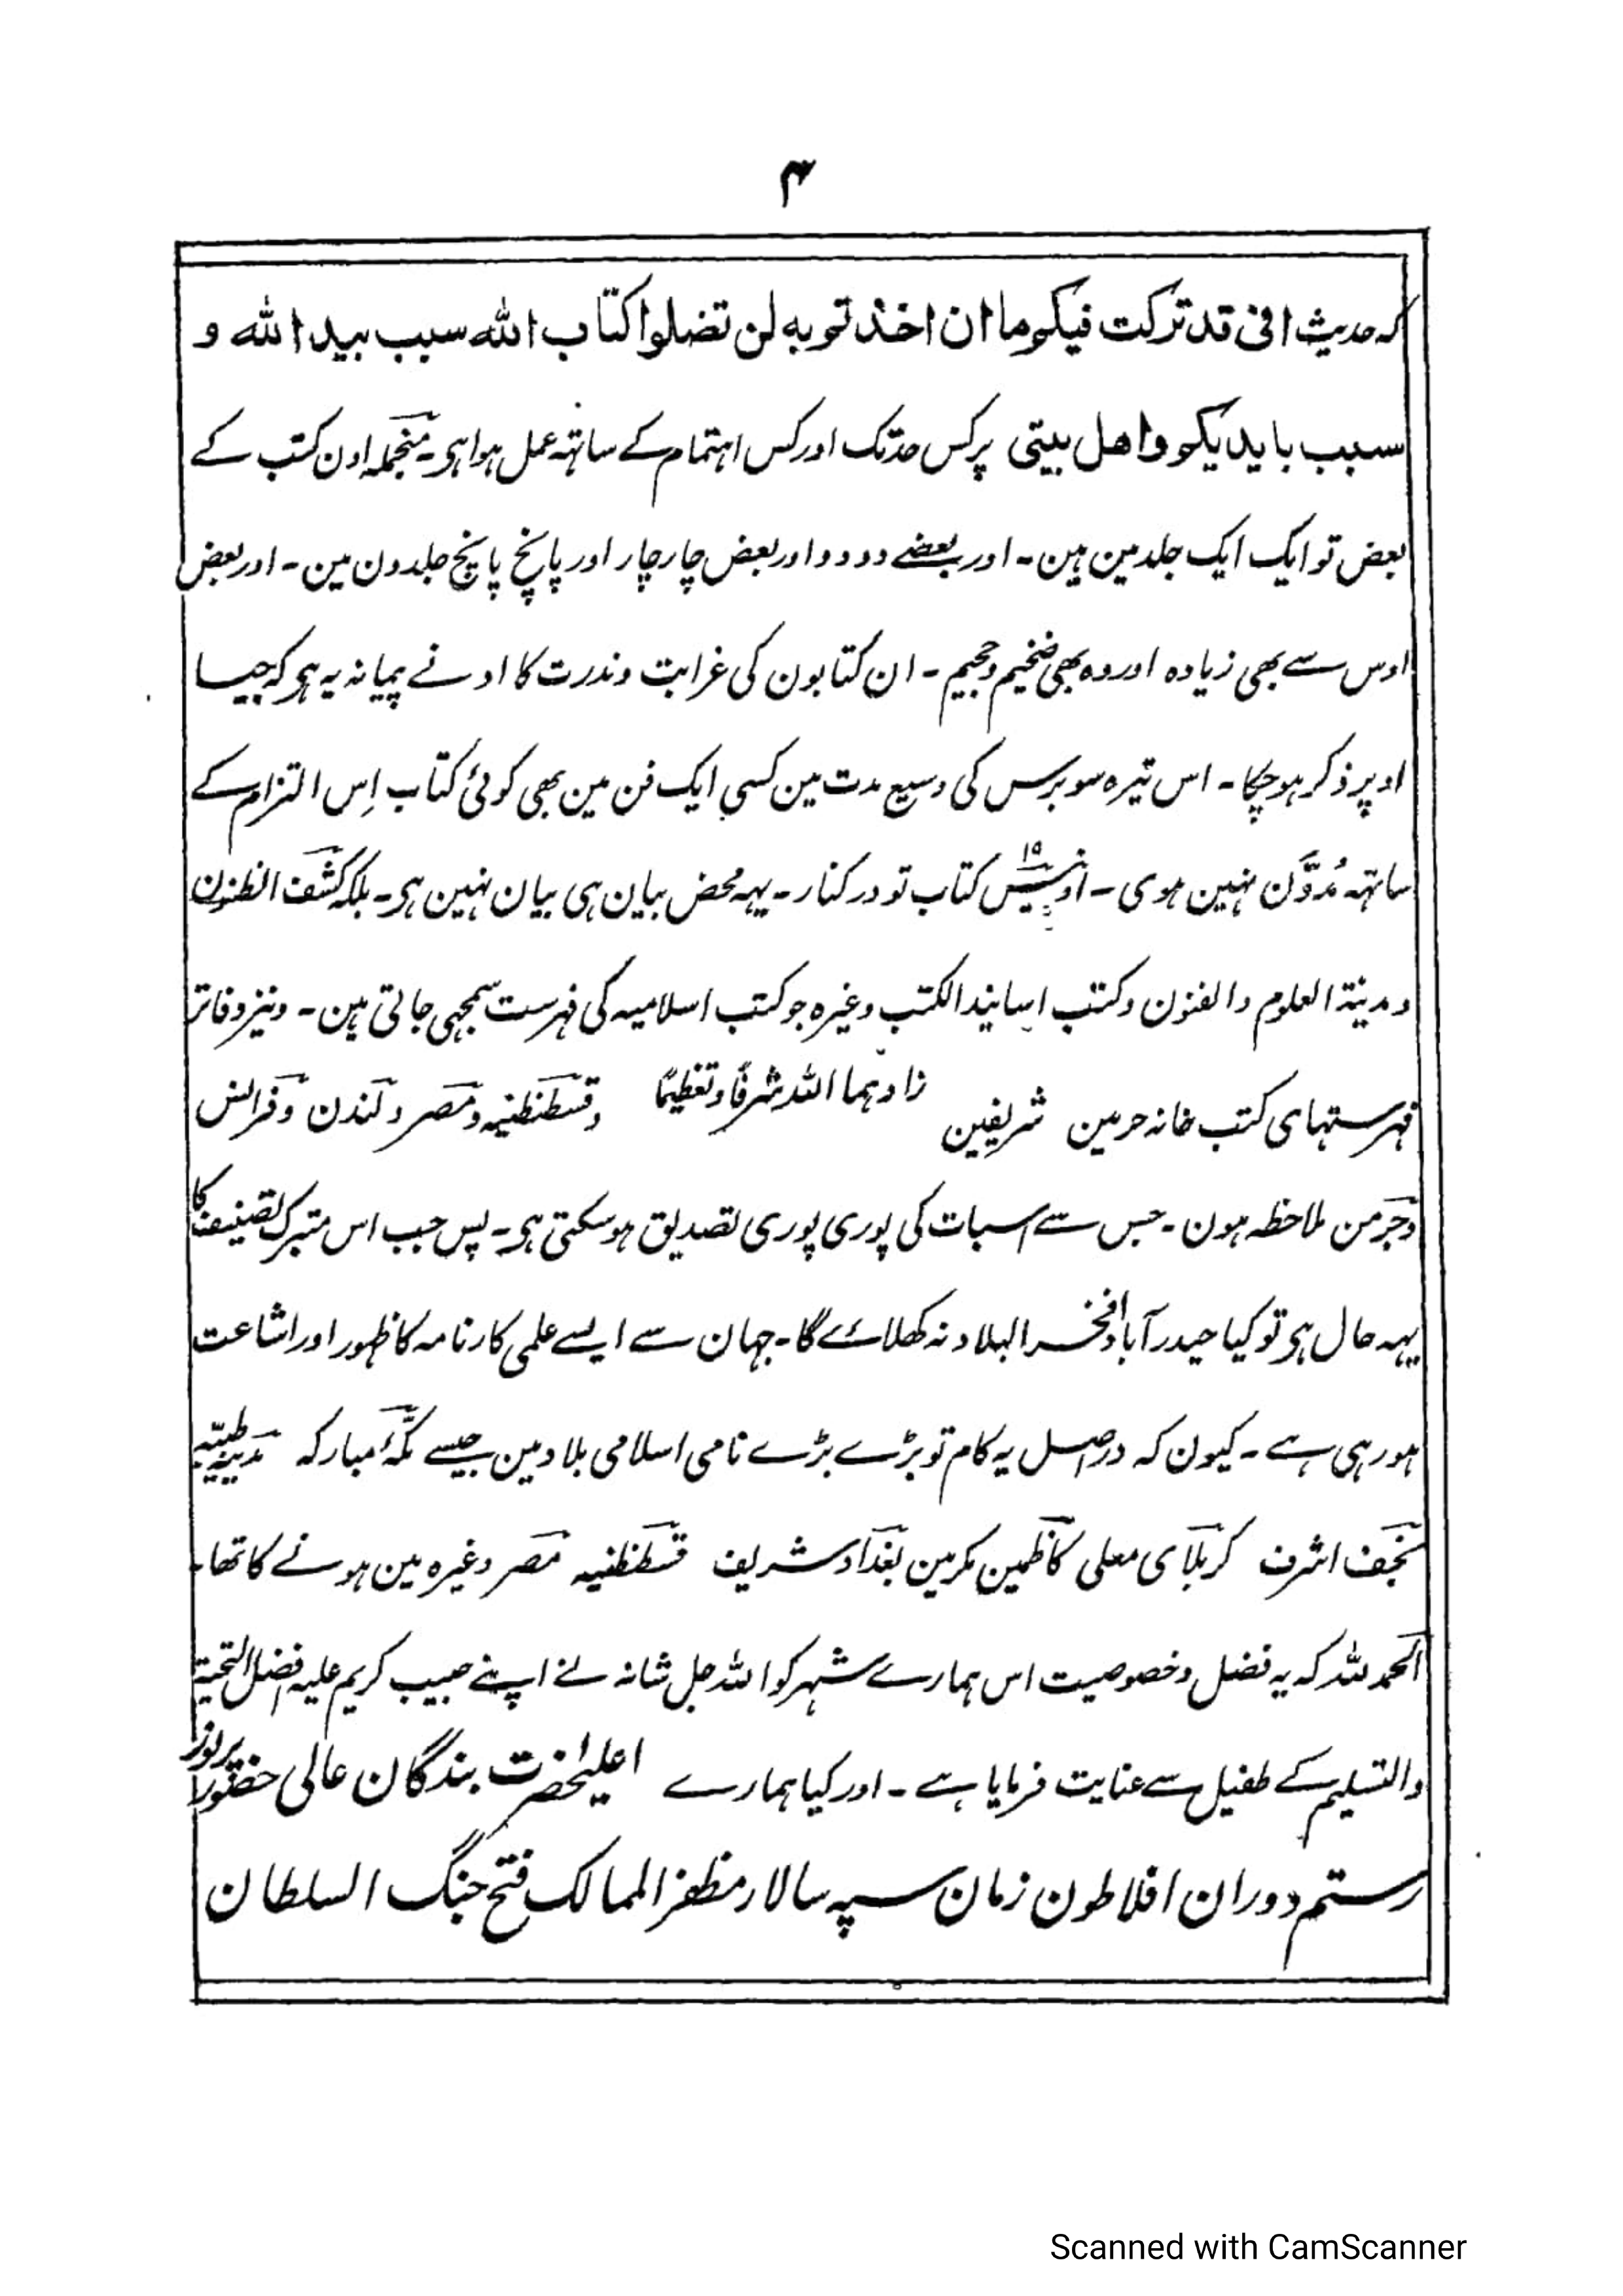 ۴
کہ حدیث انی قد ترکت فیکم ما ان اخذتم به لن تضلوا کتاب الله سبب بید الله و
سبب بایدیکم واهل بیتی پر کس حد تک اور کس اہتمام کے ساتہہ عمل ہوا ہی۔ منجملہ اون کتب کے
بعض تو ایک ایک جلد مین ہین۔ اور بعضے دو دو اور بعض چار چار اور پانچ پانچ جلدون مین۔ اور بعض
اوس سے بھی زیادہ اور وہ بھی ضخیم و حجیم۔ ان کتابون کی غرابت و ندرت کا ادنے پیمانہ یہ ہی کہ جیسا
اوپر ذکر ہو چکا۔ اس تیرہ سو برس کی وسیع مدت مین کسی ایک فن مین بھی کوئی کتاب اِس التزام کے
ساتہہ مُدوَّن نہین ہوی۔ اونیس ۱۹ کتاب تو درکنار۔ یہہ محض بیان ہی بیان نہین ہی۔ بلکہ کشف الظنون
و مدینۃ العلوم والفنون و کتب اسانید الکتب وغیرہ جو کتب اسلامیہ کی فہرست سمجہی جاتی ہین۔ و نیز دفاتر
فہرستہای کتب خانہ حرمین شریفین زادہما اللہ شرفًا و تعظیمًا و قسطنطنیہ و مصر و لندن و فرانس
و جرمن ملاحظہ ہون۔ جس سے اسبات کی پوری پوری تصدیق ہو سکتی ہی۔ پس جب اس متبرک تصنیف کا
یہہ حال ہی تو کیا حیدرآباد فخر البلاد نہ کھلائے گا۔ جہان سے ایسے علمی کارنامہ کا ظہور اور اشاعت
ہو رہی ہے۔ کیون کہ در اصل یہ کام تو بڑے بڑے نامی اسلامی بلاد مین جیسے مکۂ مبارکہ مدینہ طیبہ
نجف اشرف کربلای معلی کاظمین مکرمین بغداد شریف قسطنطنیہ مصر وغیرہ مین ہونے کا تھا۔
الحمد للہ کہ یہ فضل و خصوصیت اس ہمارے شہر کو اللہ جل شانہ نے اپنے حبیب کریم علیہ افضل التحیۃ
والتسلیم کے طفیل سے عنایت فرمایا ہے۔ اور کیا ہمارے اعلیٰحضرت بندگان عالی حضور پر نور
رستم دوران افلاطون زمان سپہ سالار مظفر الممالک فتح جنگ السلطان
Scanned with CamScanner